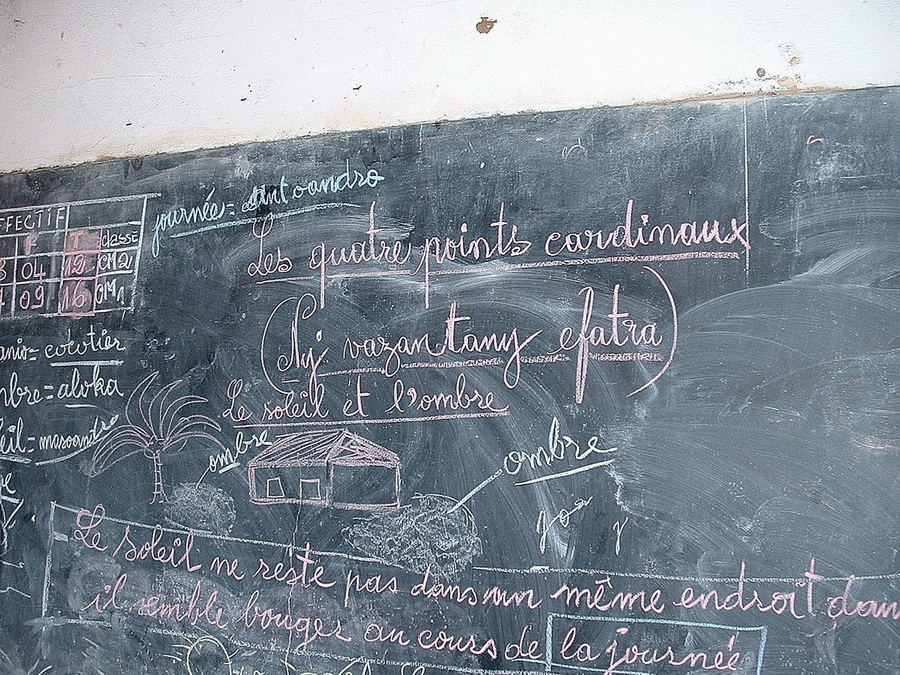 journée = antoandro
Les quatre points cardinaux
(Ny vazantany efatra)
Le soleil et l'ombre
EFFECTIF
F T classe
04 12 CM2
09 16 CM1
cocotier
aloka
masoandro
ombre
ombre
Le soleil ne reste pas dans un même endroit dan
il semble bouger au cours de la journée